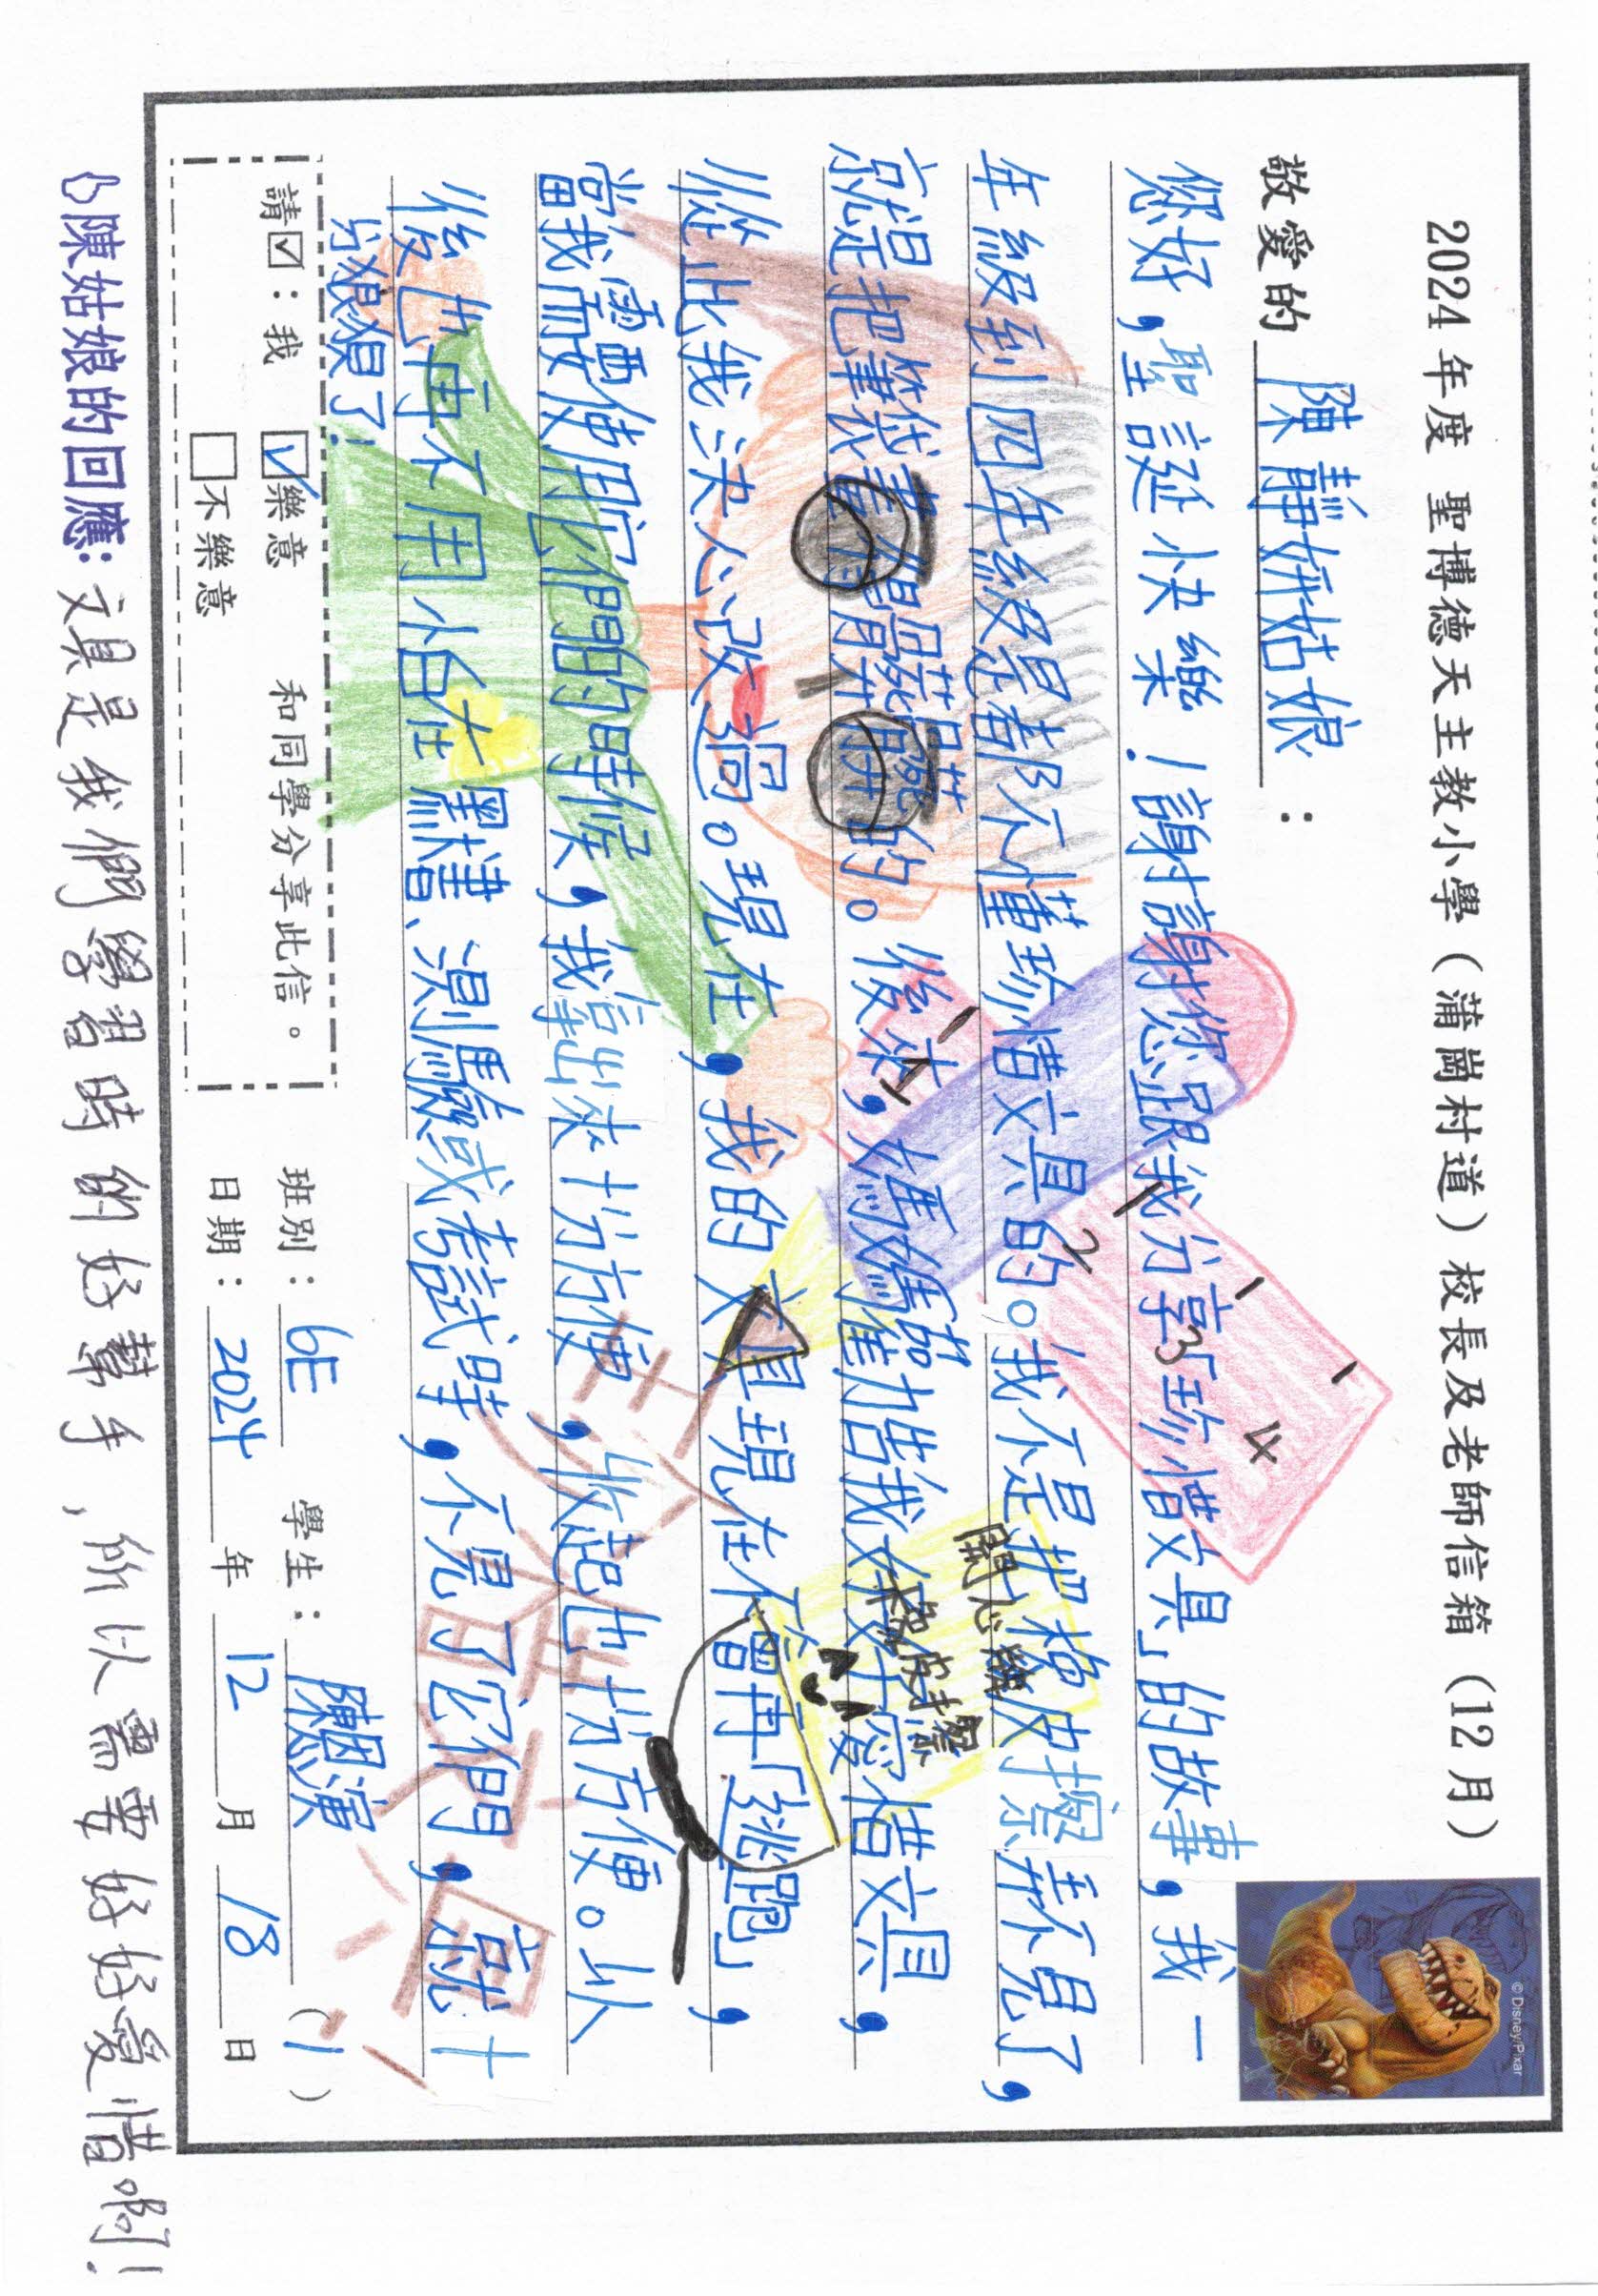 2024 年度 聖博德天主教小學（蒲崗村道）校長及老師信箱（12月）
© Disney/Pixar
敬愛的 陳靜妍姑娘：
您好，聖誕快樂！謝謝您跟我分享「珍惜文具」的故事，我一
年級到四年級是都不懂珍惜文具的。我不是把橡皮擦弄不見了，
就是把筆袋
的。後來，媽媽
我
愛惜文具，
從此我決心改過。現在，我的文具現在不曾再「逃跑」，
當我需要使用它們的時候，我拿出來十分方便，收起也十分方便。以
後也再不用怕在默書、測驗或考試時，不見了它們，就十
分狼狽了！
1
2
3
4
開心牌
橡皮擦
請☑：我 ☑樂意 和同學分享此信。
□不樂意
班別：6E 學生：陳恩演 (1)
日期：2024 年 12 月 18 日
陳姑娘的回應：文具是我們學習時的好幫手，所以需要好好愛惜啊！